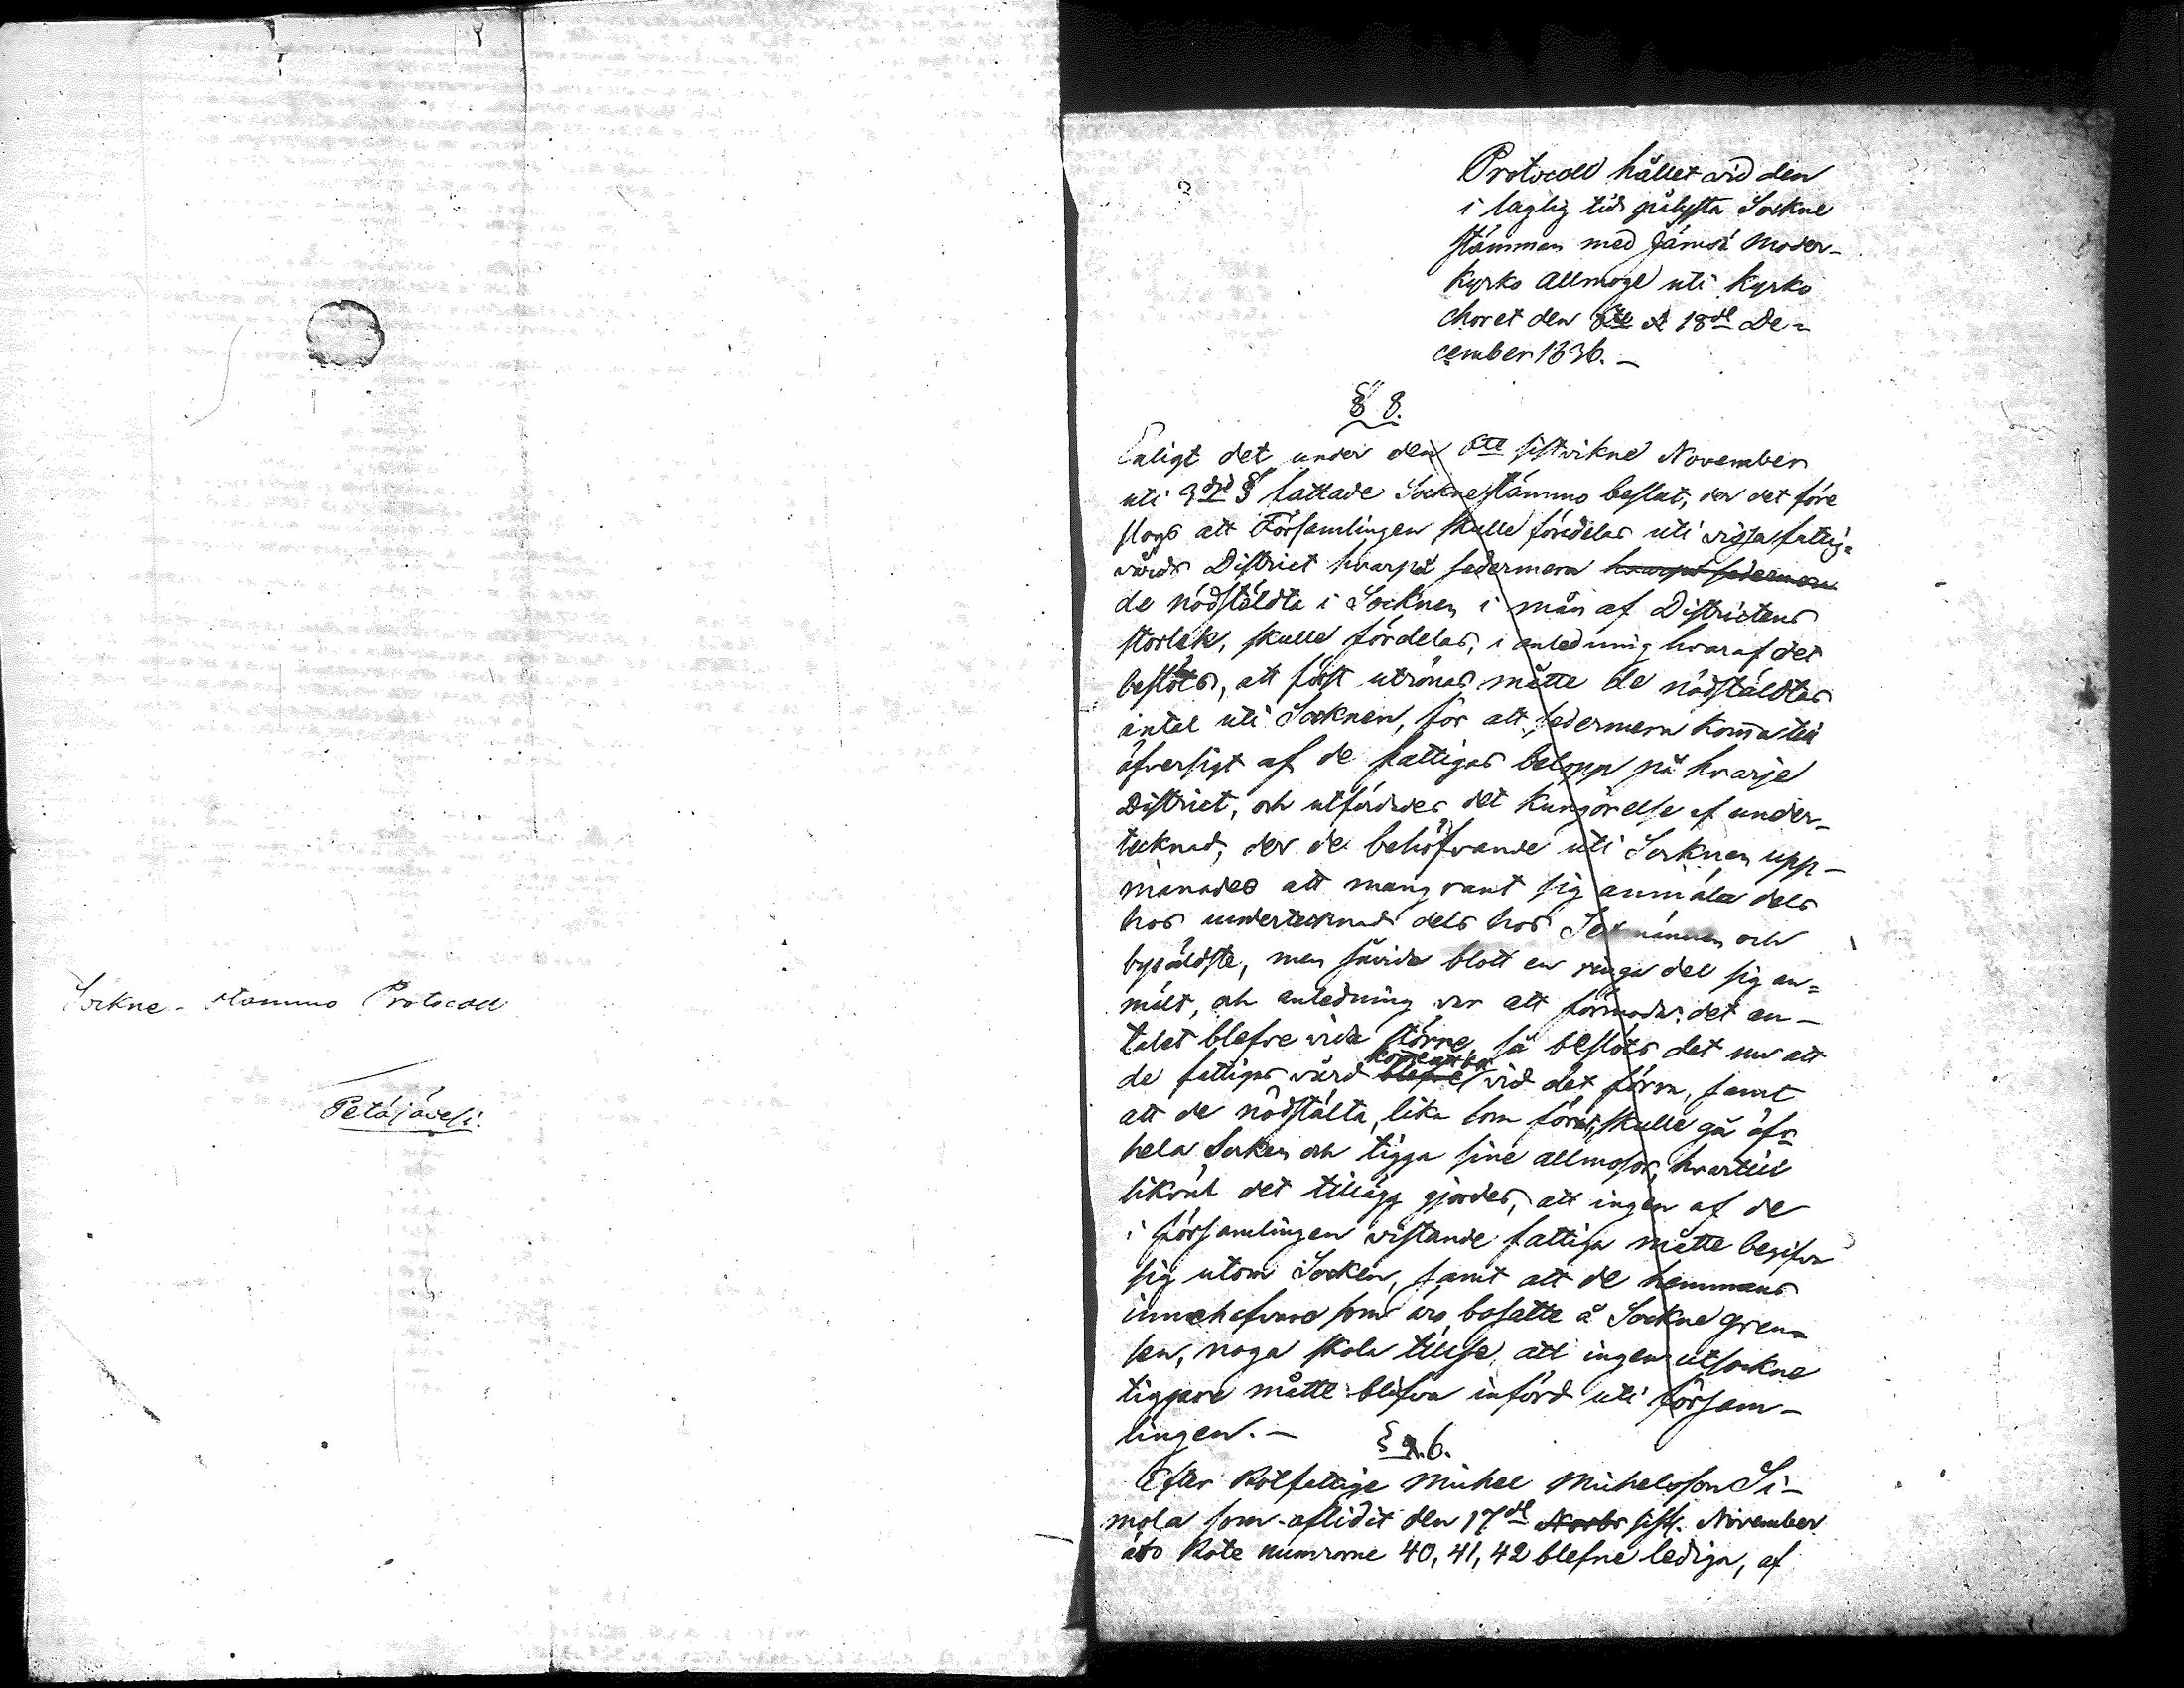 Sockne-stämmo Protocoll
Petäjävesi.
Protocoll hållet vid den
i laglig tid pålysta Sockne
stämman med Jämsä Moder-
kyrko Allmoge uti kyrko
choret den 18de De-
cember 1836. -
§ 8.
Enligt det under den 6te sistvikne November
uti 3dje § fattade Socknestämmo beslut, der det före
slogs att Församlingen skulle fördelas uti vissa fattig-
vårds District hvarpå sedermera hvarpå sedermera
de nödstäldta i Socknen i mån af Districtens
storlek, skulle fördelas, i anledning hvaraf det
beslöts, att först utrönas måtte de nödstäldtas
antal uti Socknen, för att sedermera komma till
öfversigt af de fattigas belopp på hvarje
District, och utfärdades det Kungörelse af under-
tecknad, der de behöfvande uti Socknen upp-
manades att mangrant sig anmäla dels
hos undertecknad dels hos Sexmännen och
byäldste, men såvida blott en ringa del sig an-
mält, och anledning var att förmoda det an-
talet blefve vida större, så beslöts det nu att
de fattigas vård blefve vid det förra, samt
att de nödstälta, lika som förut, skulle gå öfr
hela Socken och tigga sine allmosor, hvartill
likväl det tillägg gjordes, att ingen af de
i församlingen vistande fattiga måtte begifva
sig utom Socken, samt att de hemmans
innehafvare som äro bosatte å Sockne gren-
sen, noga skola tillse att ingen utsockne
tiggare måtte blifva införd uti försam-
lingen. -
§ 9. 6.
Efter Rotfattige Michel Michelsson Si-
mola som aflidit den 17de Novbr sistl. November
äro Rote numrorne 40, 41, 42 blefne lediga, af